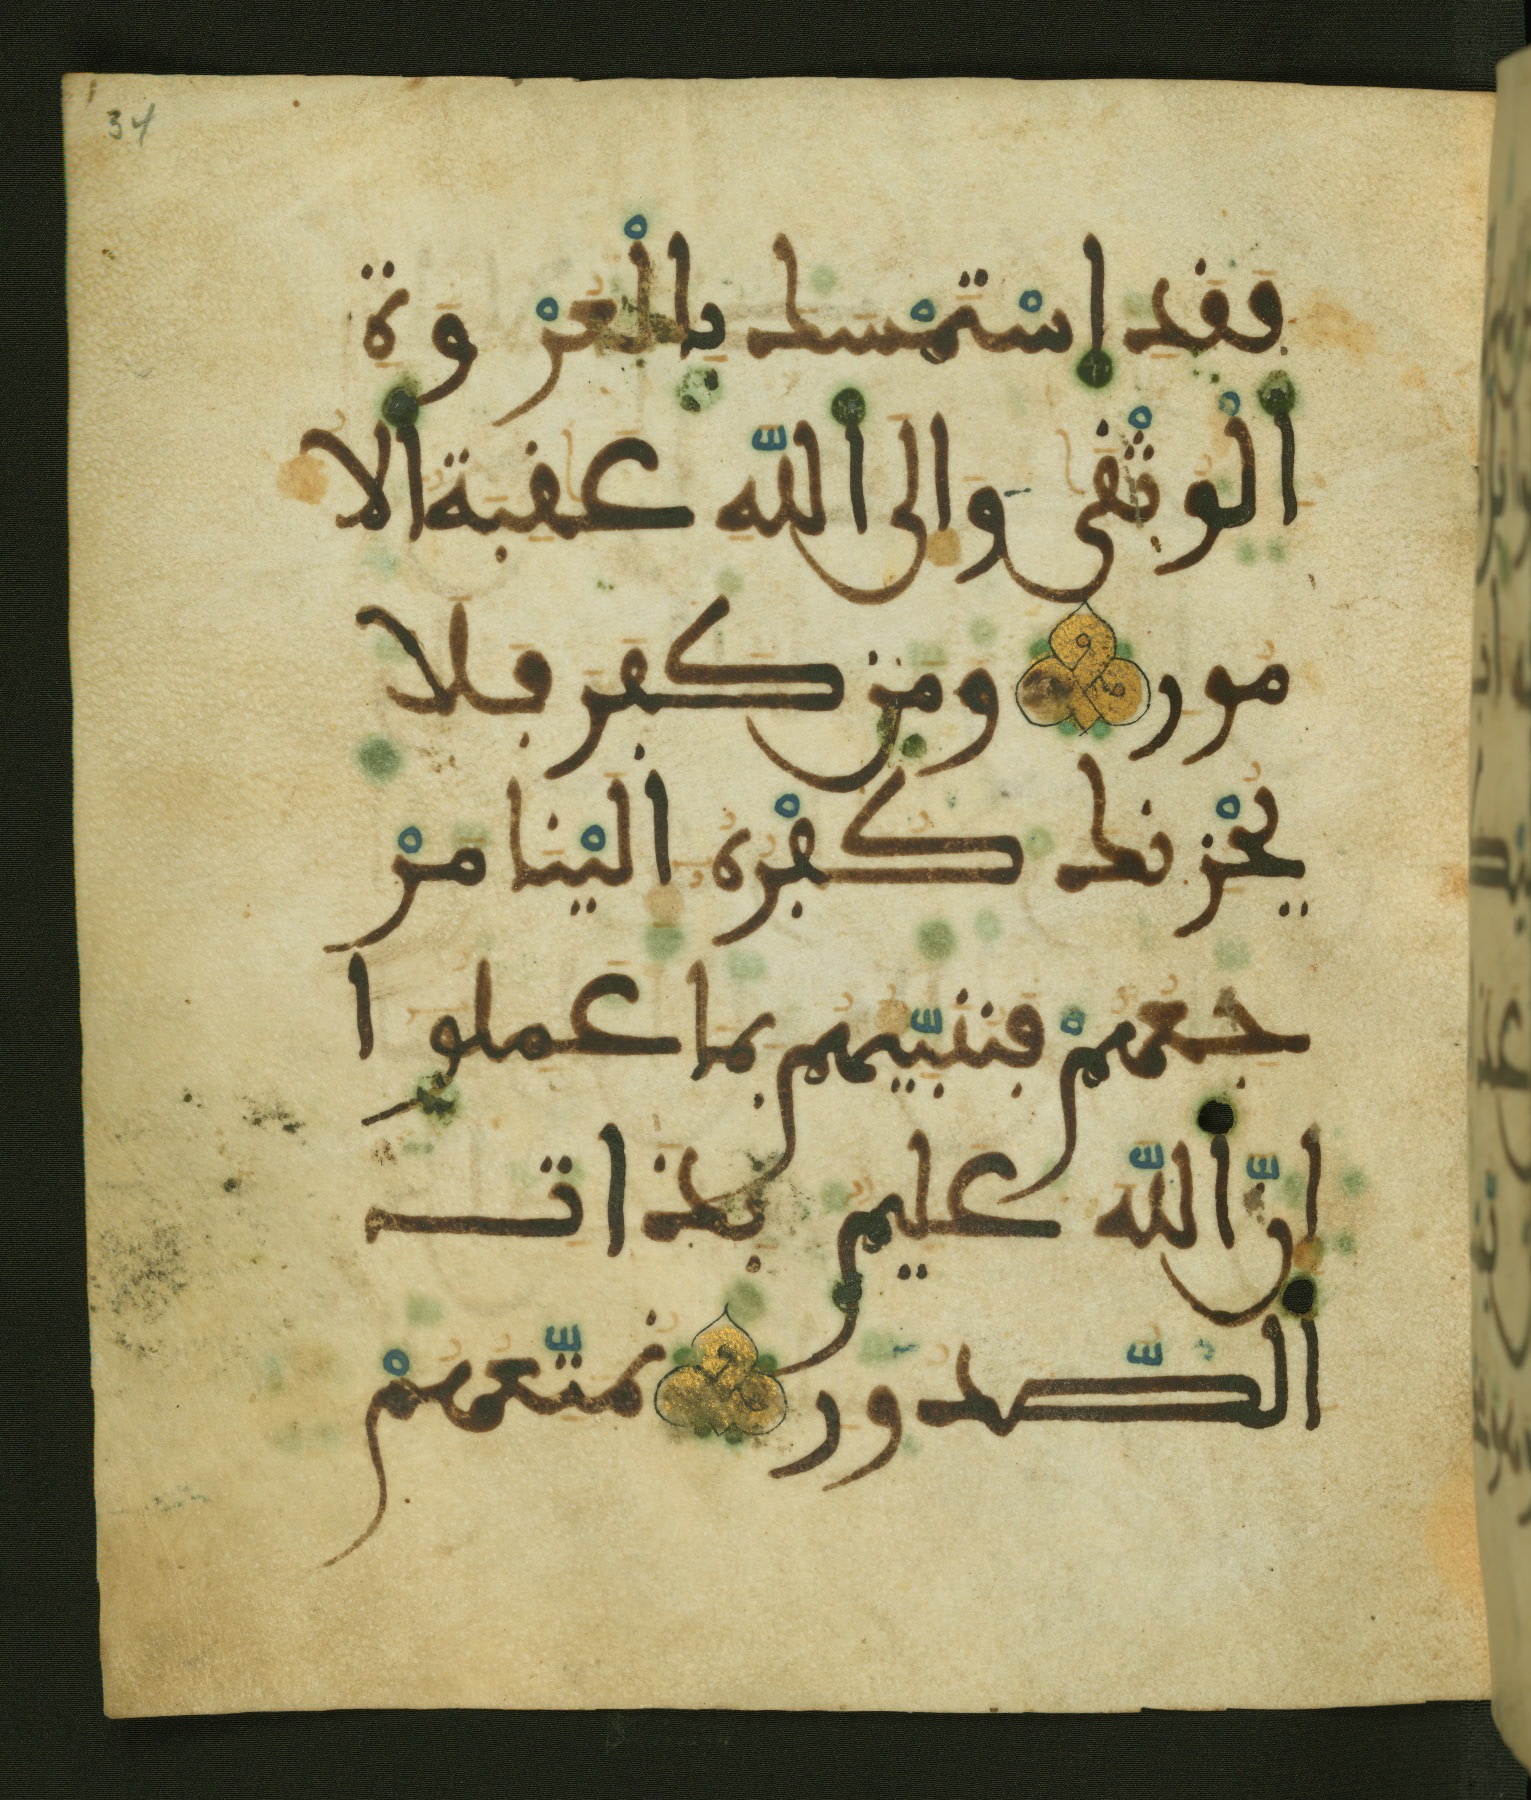 34
فَقَدِ اسْتَمْسَكَ بِالْعُرْوَةِ
الْوُثْقَى وَإِلَى اللَّهِ عَقِبَةُ الُا
مُورِ وَمَن كَفَرَ فَلَا
يُحْزِنكَ كُفْرُهُ إِلَيْنَا مَرْ
جِعُهُمْ فَنُنَبِّئُهُم بِمَا عَمِلُوا
إِنَّ اللَّهَ عَلِيمٌ بِذَاتِ
الصُّدُورِ نُمَتِّعُهُمْ